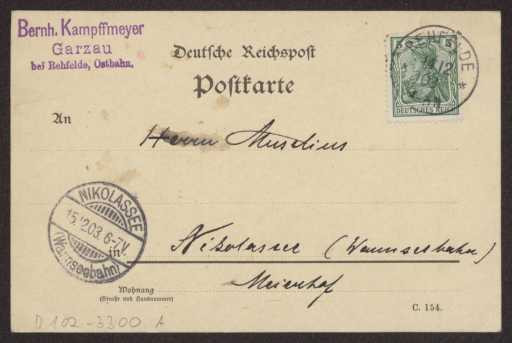 Bernh. Kampffmeyer
Garzau
bei Rehfelde, Ostbahn.
Deutsche Reichspost
Postkarte
REHFELDE
12
DEUTSCHES REICH
An
Herrn Muselius
NIKOLASSEE
15.12.03. 6-7 V.
(Wannseebahn)
in
Nikolassee (Wannseebahn)
Meierhof
Wohnung
(Straße und Hausnummer)
C. 154.
D 102-3300 A